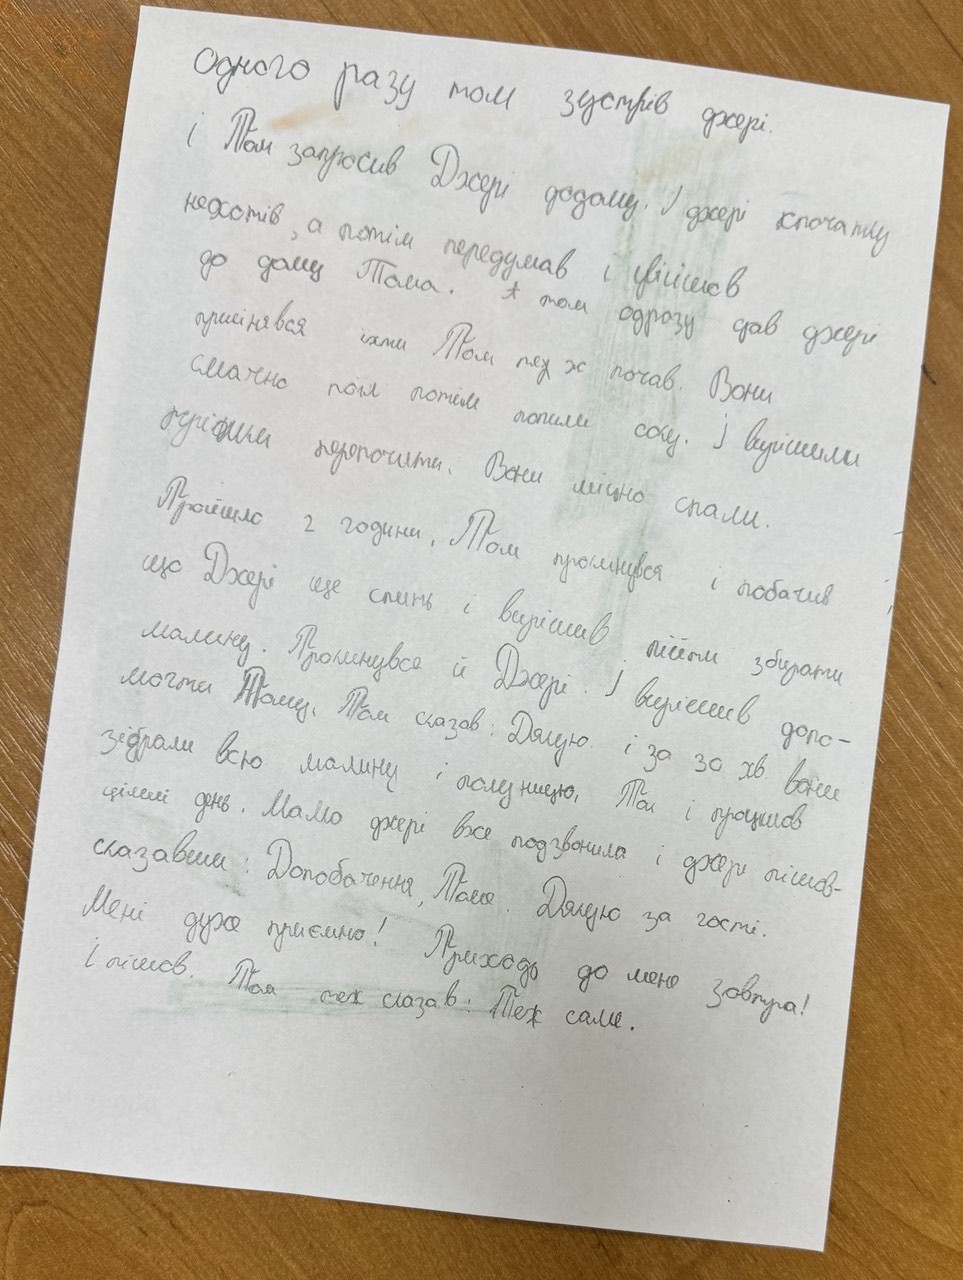 Одного разу том зустрів джері.
і Том запросив Джері додому. І джері спочатку
нехотів, а потім передумав і увійшов
до дому Тома. А том одразу дав джері
їхти Том теж почав. Вони
смачно поїл потім попили соку. І вирішили
перепочити. Вони міцно спали.
Пройшло 2 години, Том прокинувся і побачив
що Джері ще спить і вирішив піити збирати
малину. Прокинувся й Джері. І вирішив допо-
могти Тому. Том сказав: Дякую. і за 30 хв. вони
зібрали всю малину і полуницю, Так і пройшов
цілий день. Мамо джері вже подзвонила і джері пішов-
сказавши: Допобачення, Томе. Дякую за гості.
Мені дуже приємно! Приходь до мене завтра!
І пішов. Том теж сказав: Теж саме.